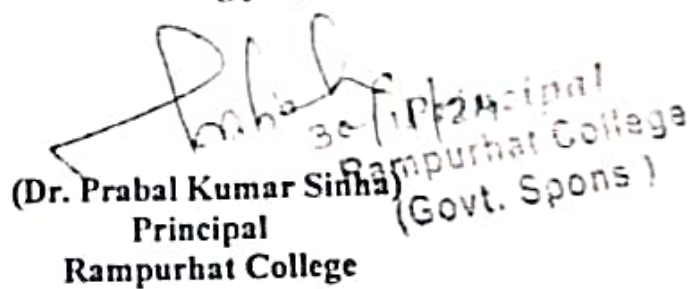 Principal
Rampurhat College
(Govt. Spons )
(Dr. Prabal Kumar Sinha)
Principal
Rampurhat College